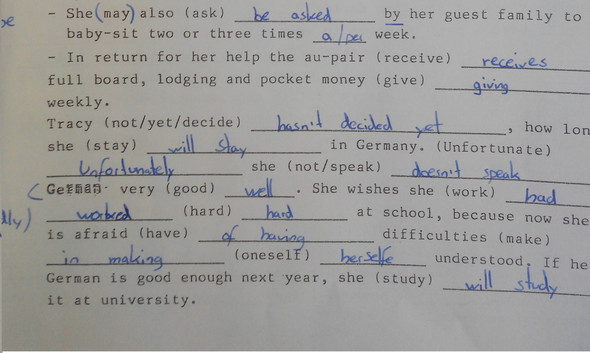 - She (may) also (ask) be asked by her guest family to
baby-sit two or three times a/per week.
- In return for her help the au-pair (receive) receives
full board, lodging and pocket money (give) giving
weekly.
Tracy (not/yet/decide) hasn't decided yet, how lon
she (stay) will stay in Germany. (Unfortunate)
Unfortunately she (not/speak) doesn't speak
German very (good) well. She wishes she (work) had
lly) worked (hard) hard at school, because now she
is afraid (have) of having difficulties (make)
in making (oneself) herselfe understood. If he
German is good enough next year, she (study) will study
it at university.